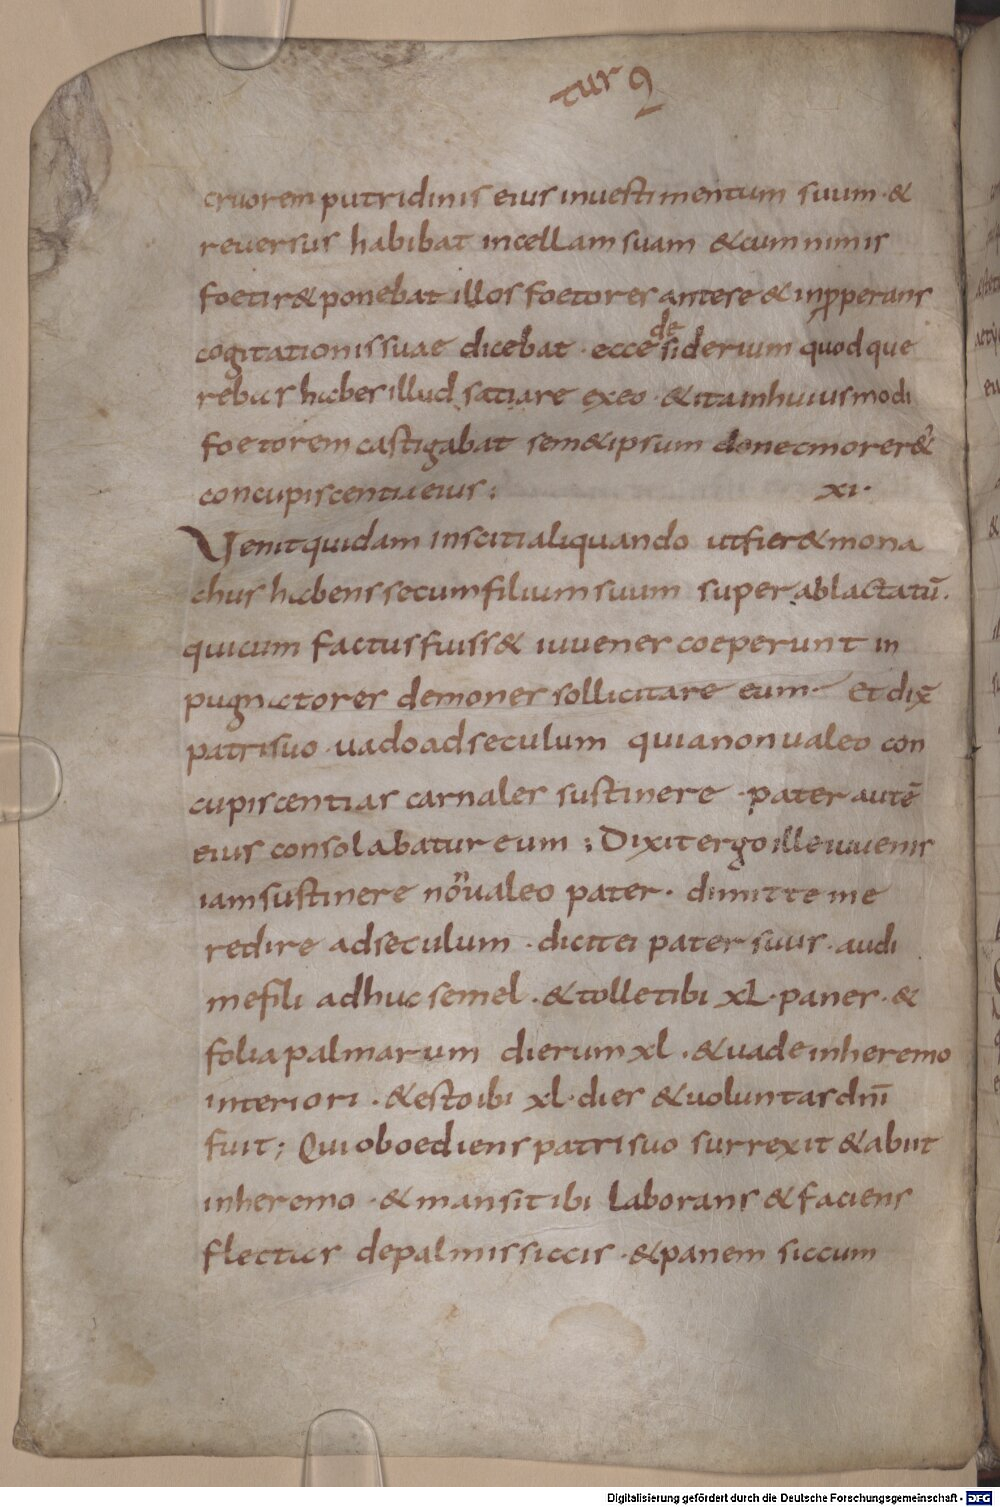 tur 9
cruorem putridinis eius inuestimentum suum · &
reuersus habibat incellam suam &cumnimis
foetir& ponebat illos foetores antese & inpperans
cogitationissuae dicebat · ecce desiderium quodque
rebas habes illud satiare exeo · &itainhuiusmodi
foetorem castigabat sem&ipsum donecmorer&
concupiscentia eius ; xi ·
Venitquidam inscitialiquando utfier&mona
chus habens secumfilium suum super ablactatū ·
quicum factusfuiss& iuuenes coeperunt in
pugnatores demones sollicitare eum · Et dix̄
patrisuo · uadoadseculum quianonualeo con
cupiscentias carnales sustinere · pater autē
eius consolabatur eum ; Dixitergoilleiuuenis
iamsustinere nōualeo pater · dimitte me
redire adseculum · dicitei pater suus · audi
mefili adhuc semel · &tolletibi xL · panes · &
folia palmarum dierum xl · &uadeinheremo
interiori · &estoibi xl · dies &uoluntasdn̄i
fuit ; Qui oboediens patrisuo surrexit &abiit
inheremo · &mansit ibi laborans &faciens
flectas depalmissiccis · &panem siccum
Digitalisierung gefördert durch die Deutsche Forschungsgemeinschaft - DFG